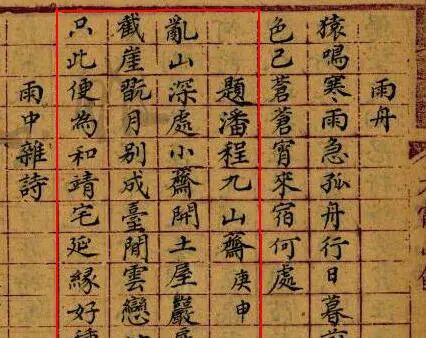 雨舟
猿鳴寒雨急孤舟行日暮
色已蒼蒼宵來宿何處
題潘程九山齋庚申
亂山深處小齋開土屋巖
截崖翫月别成臺閒雲戀
只此便為和靖宅延緣好
雨中雜詩